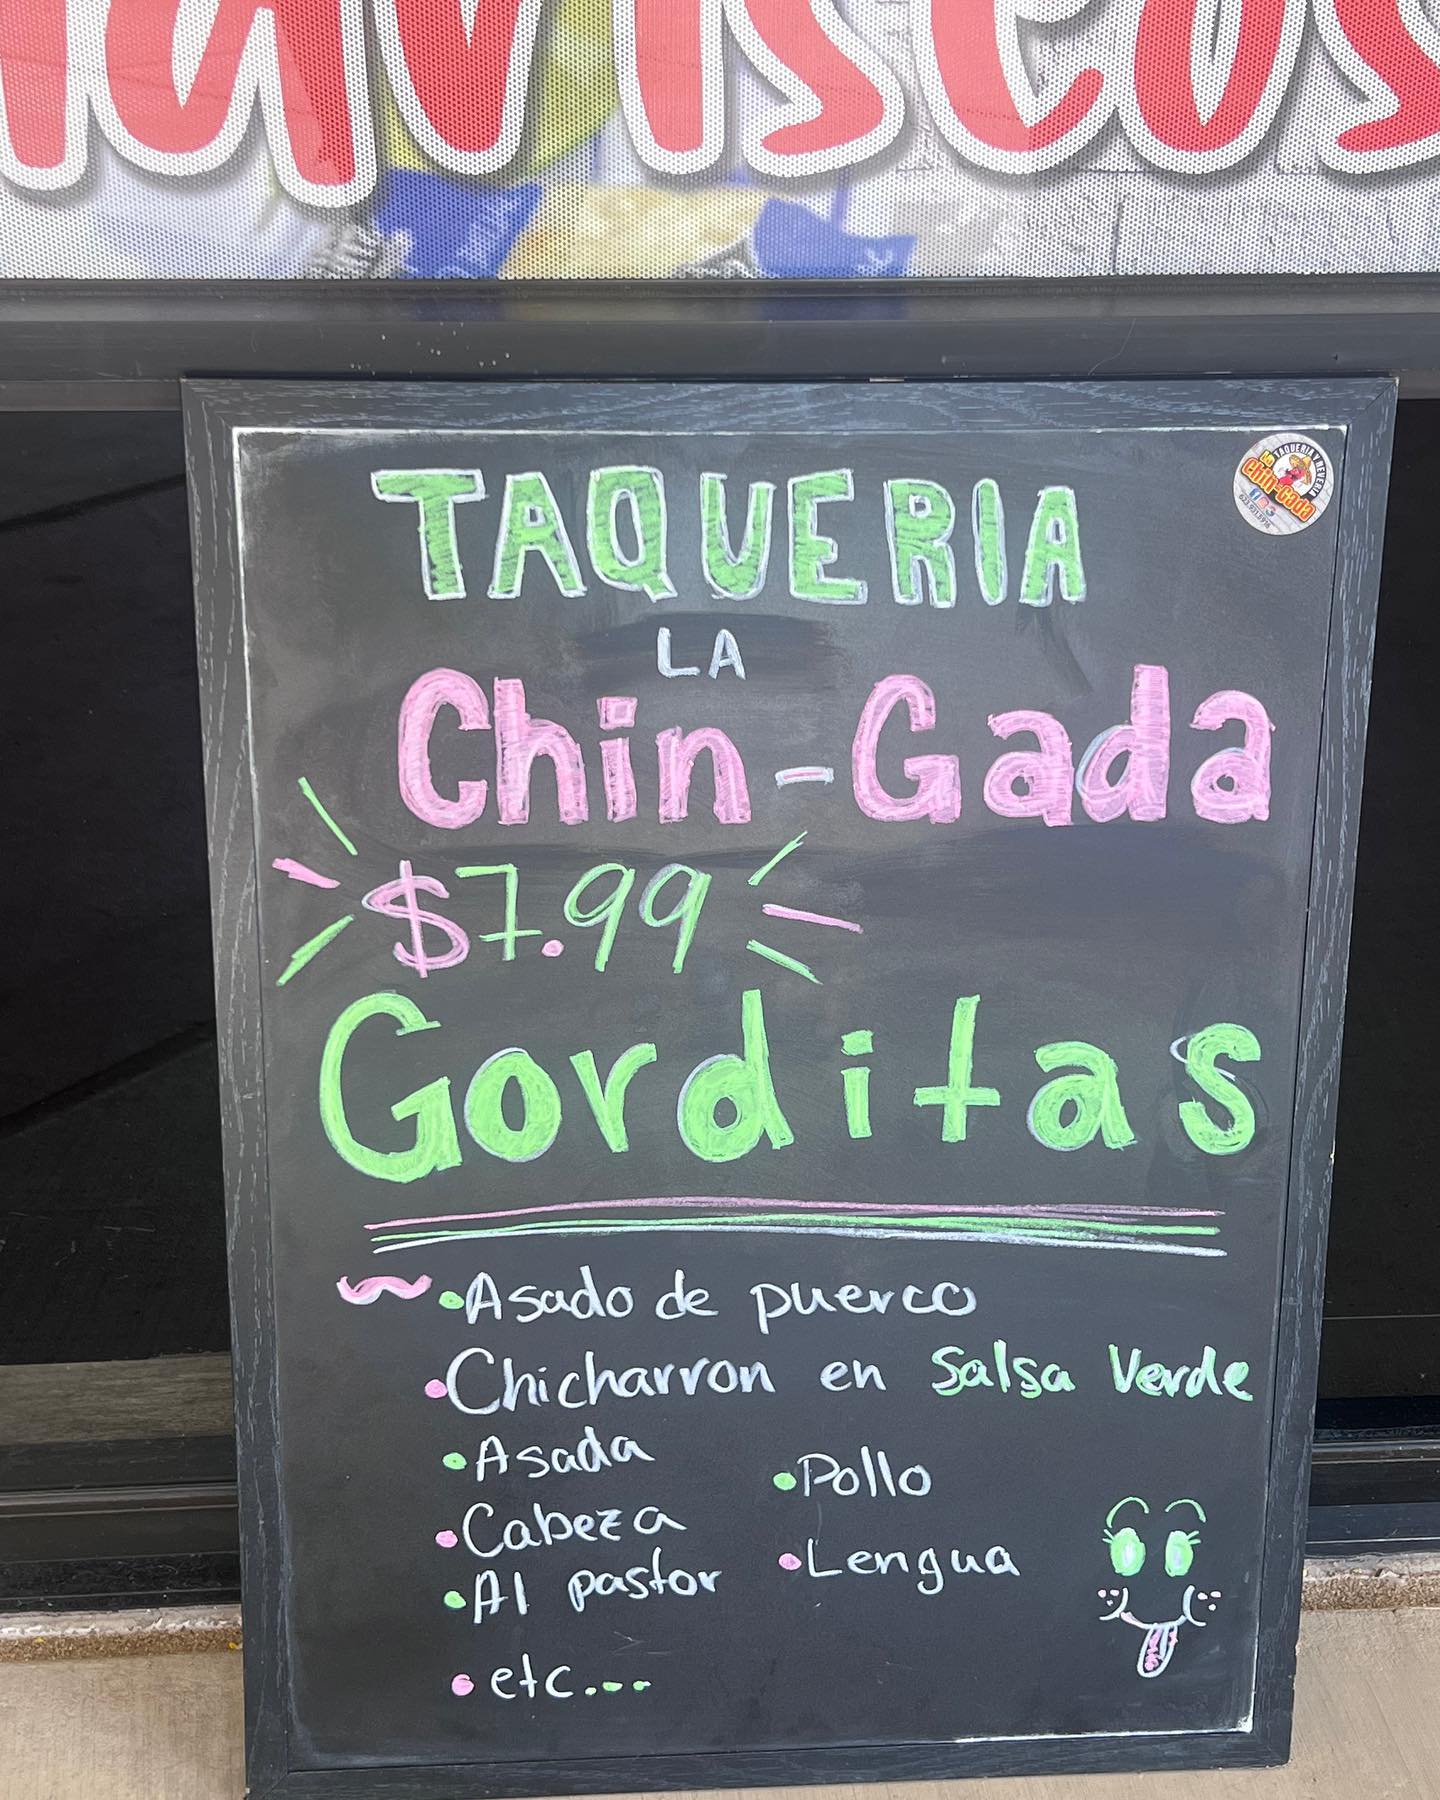 TAQUERIA
LA
Chin-Gada
$7.99
Gorditas
•Asado de puerco
•Chicharron en Salsa Verde
•Asada
•Cabeza
•Al pastor
•Pollo
•Lengua
•etc...
TAQUERIA Y NEVERIA
La
Chin-Gada